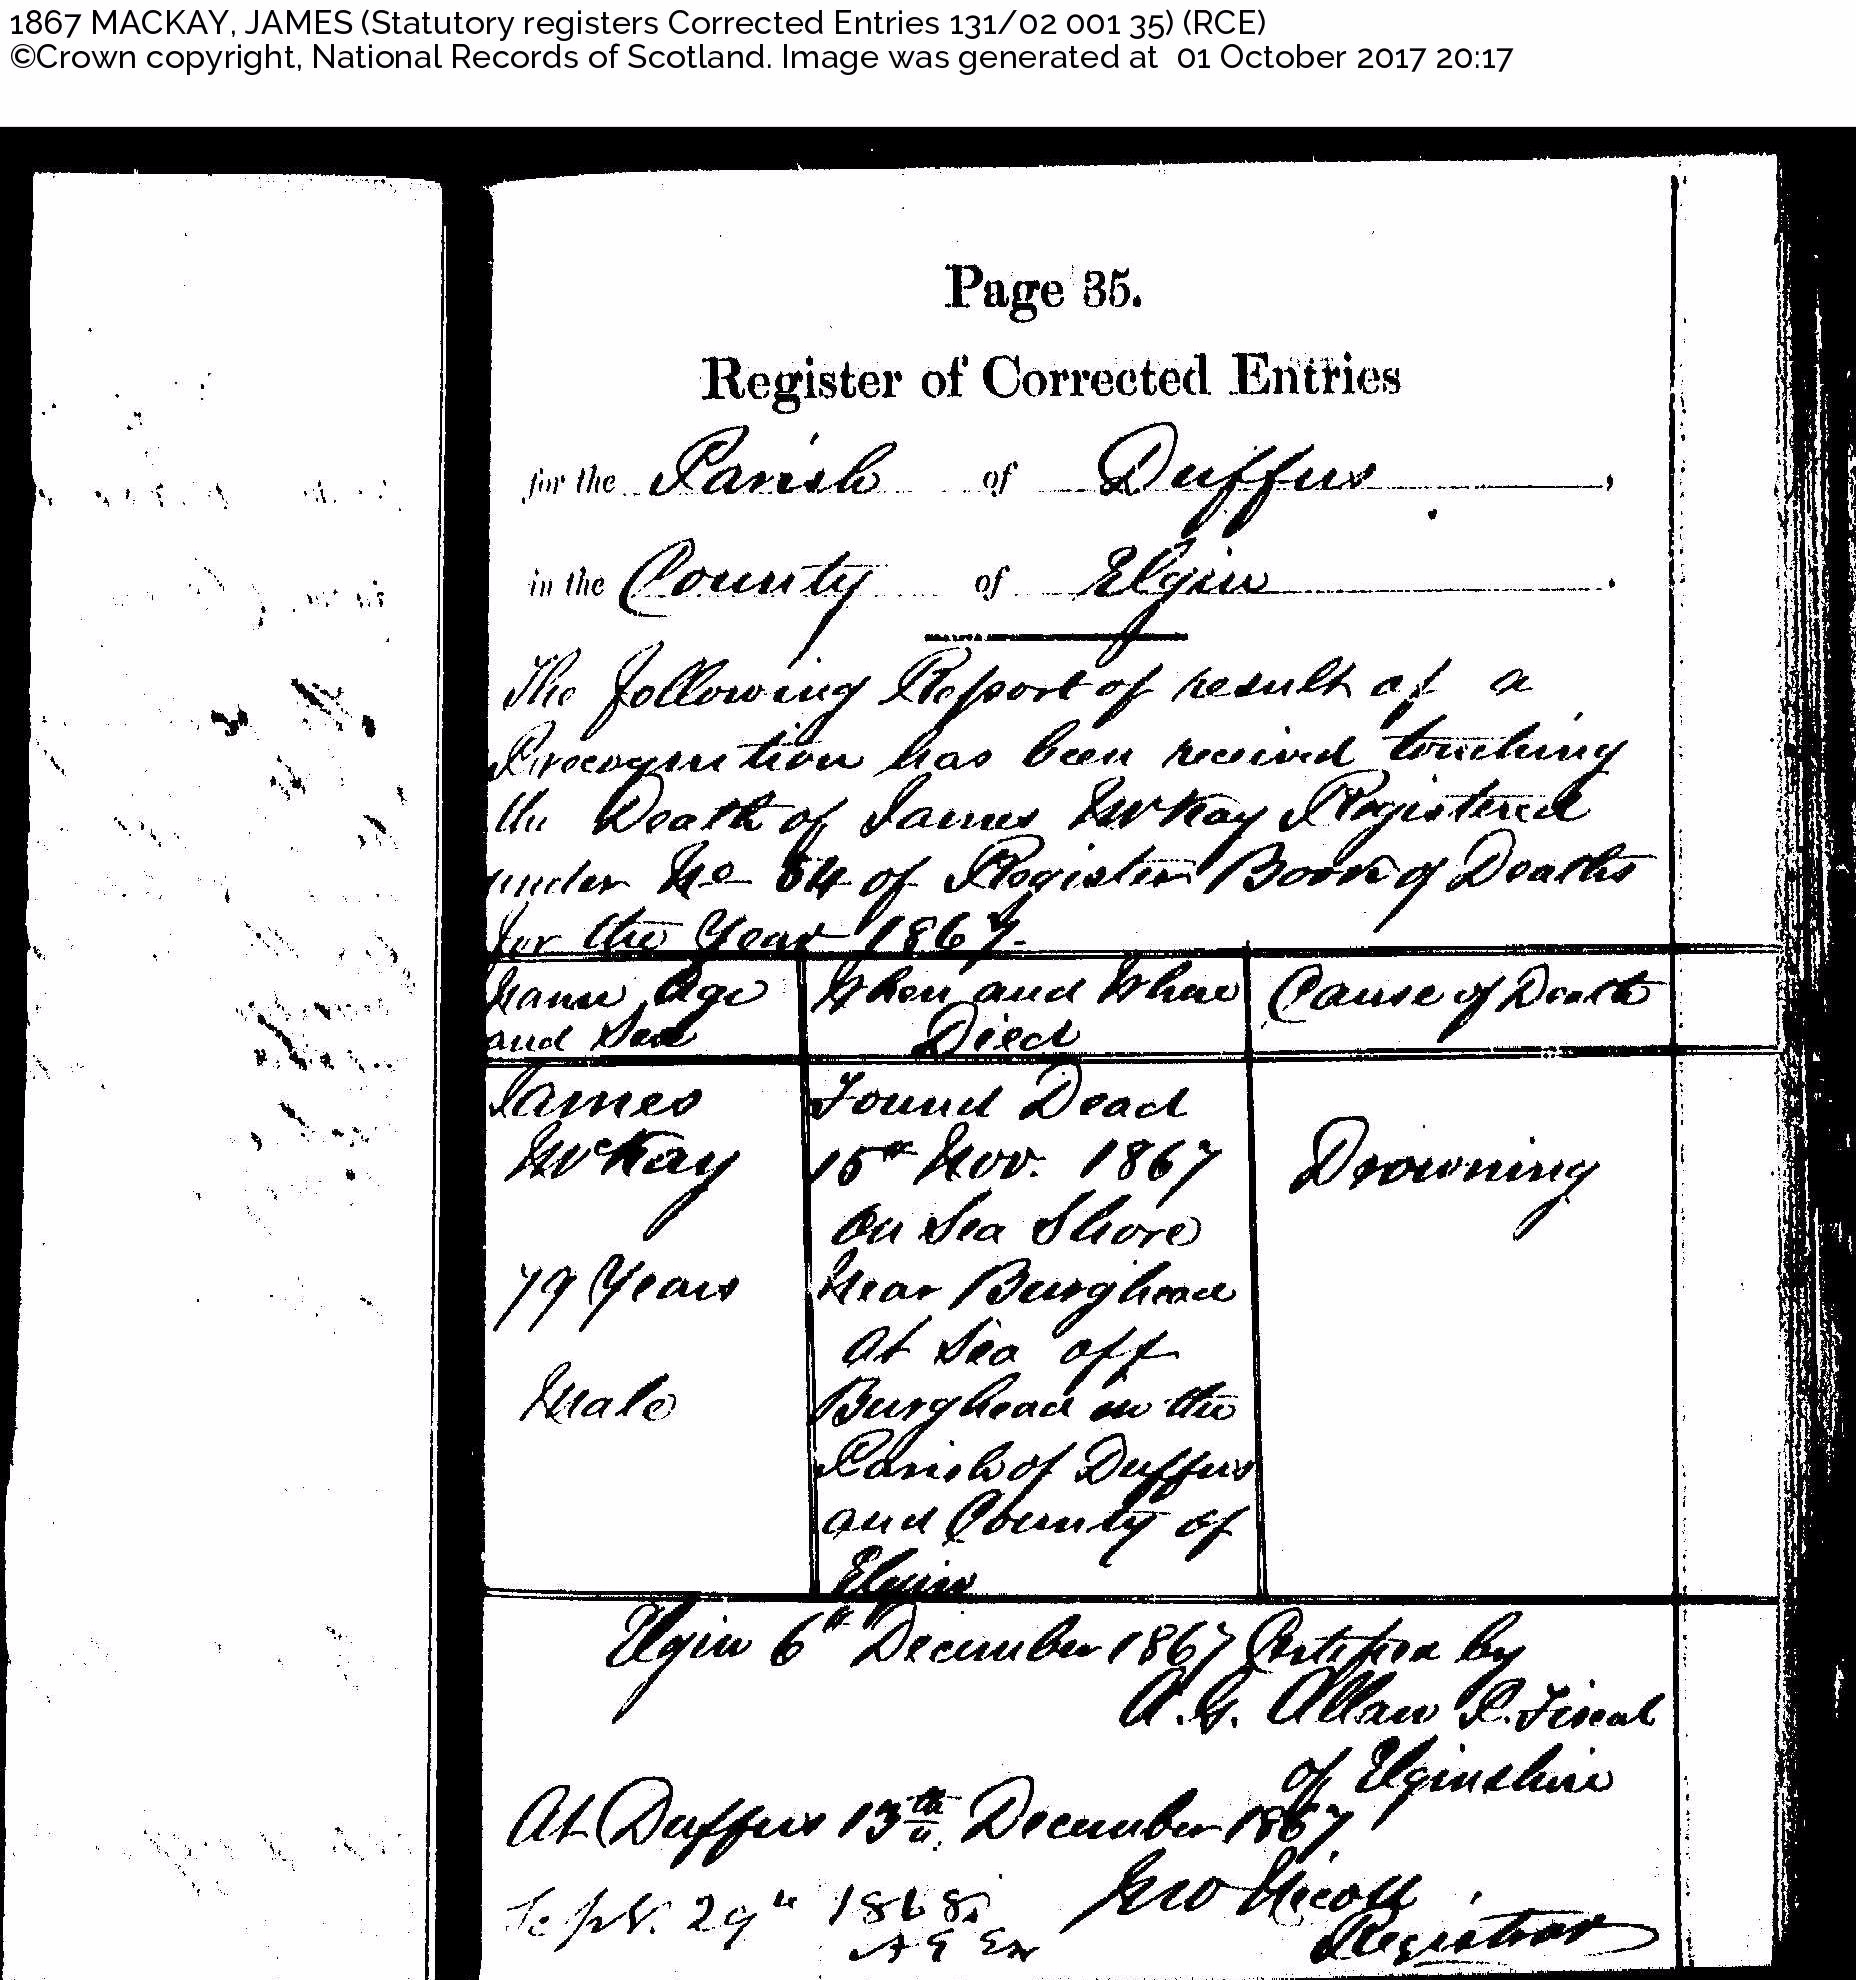 1867 MACKAY, JAMES (Statutory registers Corrected Entries 131/02 001 35) (RCE)
©Crown copyright, National Records of Scotland. Image was generated at 01 October 2017 20:17
Page 35.
Register of Corrected Entries
for the Parish of Duffus,
in the County of Elgin.
The following Report of result of a
Precognition has been received touching
the Death of James McKay Registered
under No 54 of Register Book of Deaths
for the Year 1867.
Name Age and Sex
When and Where Died
Cause of Death
James
McKay
79 Years
Male
Found Dead
15th Nov. 1867
On Sea Shore
Near Burghead
At Sea off
Burghead in the
Parish of Duffus
and County of
Elgin
Drowning
Elgin 6th December 1867 Certified by
A. G. Allan P. Fiscal
of Elginshire
At Duffus 13th December 1867
Sept. 29th 1868 Nicoll
Registrar